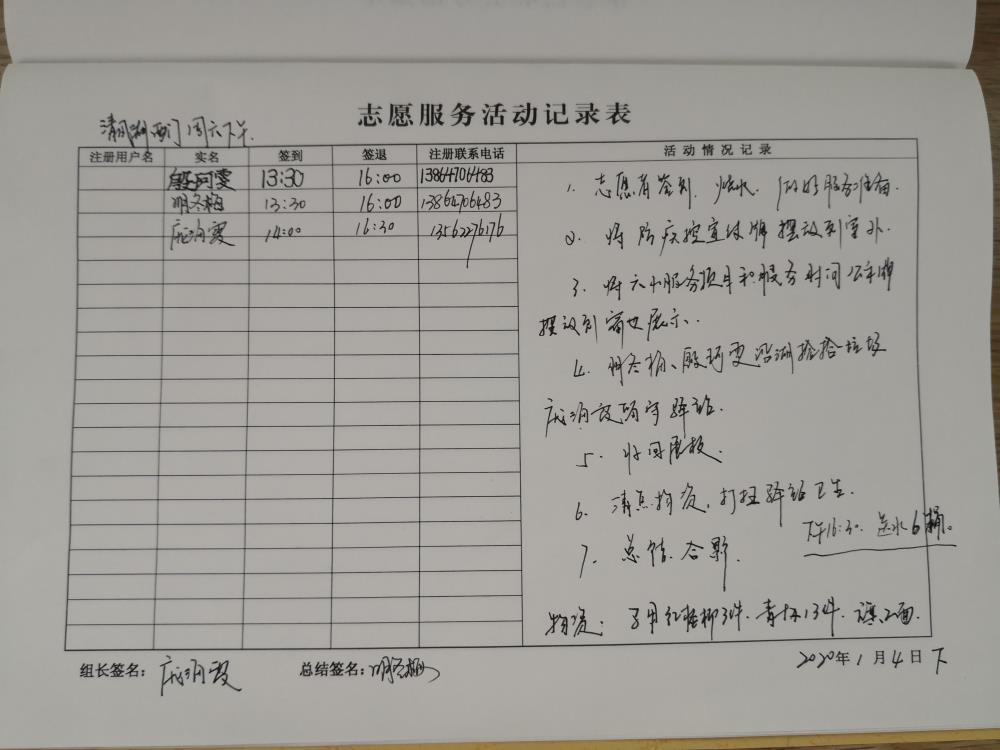 志愿服务活动记录表
清风湖西门周六下午.
注册用户名 实名 签到 签退 注册联系电话 活动情况记录
殷珂雯 13:30 16:00 13864706483
明冬梅 13:30 16:00 13864706483
庞润霞 14:00 16:30 13562276176
1. 志愿者签到. 烧水. 做好服务准备.
2. 将防疾控宣传牌摆放到室外.
3. 将六小服务项目和服务时间公示牌
摆放到室外展示.
4. 明冬梅、殷珂雯沿湖捡拾垃圾
庞润霞留守驿站.
5. 收回展板.
6. 清点物资, 打扫驿站卫生.
下午16:30. 送水6桶。
7. 总结. 合影.
物资: 马甲红 3件. 青 13件. 旗2面.
组长签名: 庞润霞 总结签名: 明冬梅
2020年1月4日下